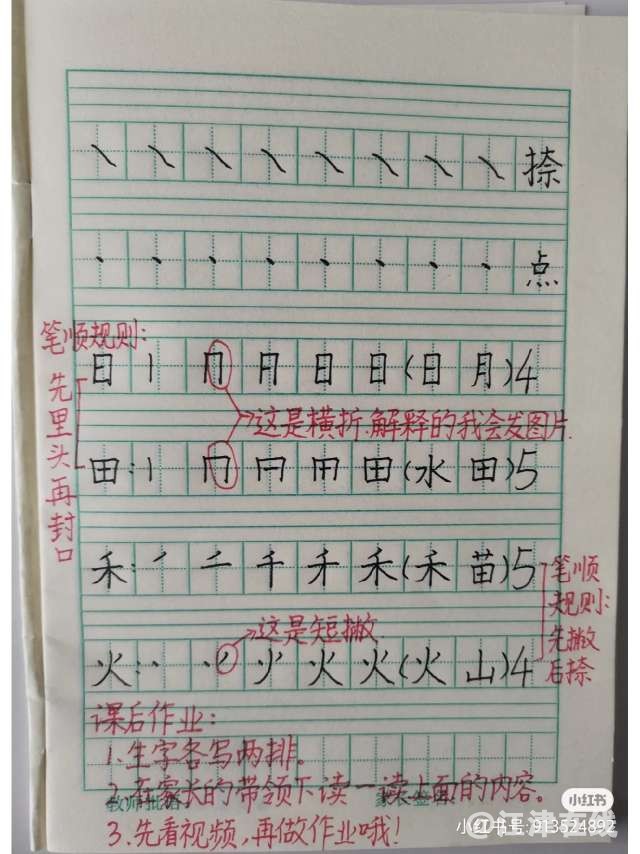 捺
点
笔顺规则:
日 丨 冂 月 日 日(日 月)4
先里头再封口
这是横折.解释的我会发图片.
田: 丨 冂 田 田(水 田)5
禾: 丿 二 千 禾 禾(禾 苗)5
笔顺
规则:
先撇
后捺
这是短撇.
火: 火 火(火 山)4
课后作业:
1.生字各写两排。
2.在家长的带领下读一读上面的内容。
3.先看视频,再做作业哦!
小红书
小红书号:913524892
@江津在线